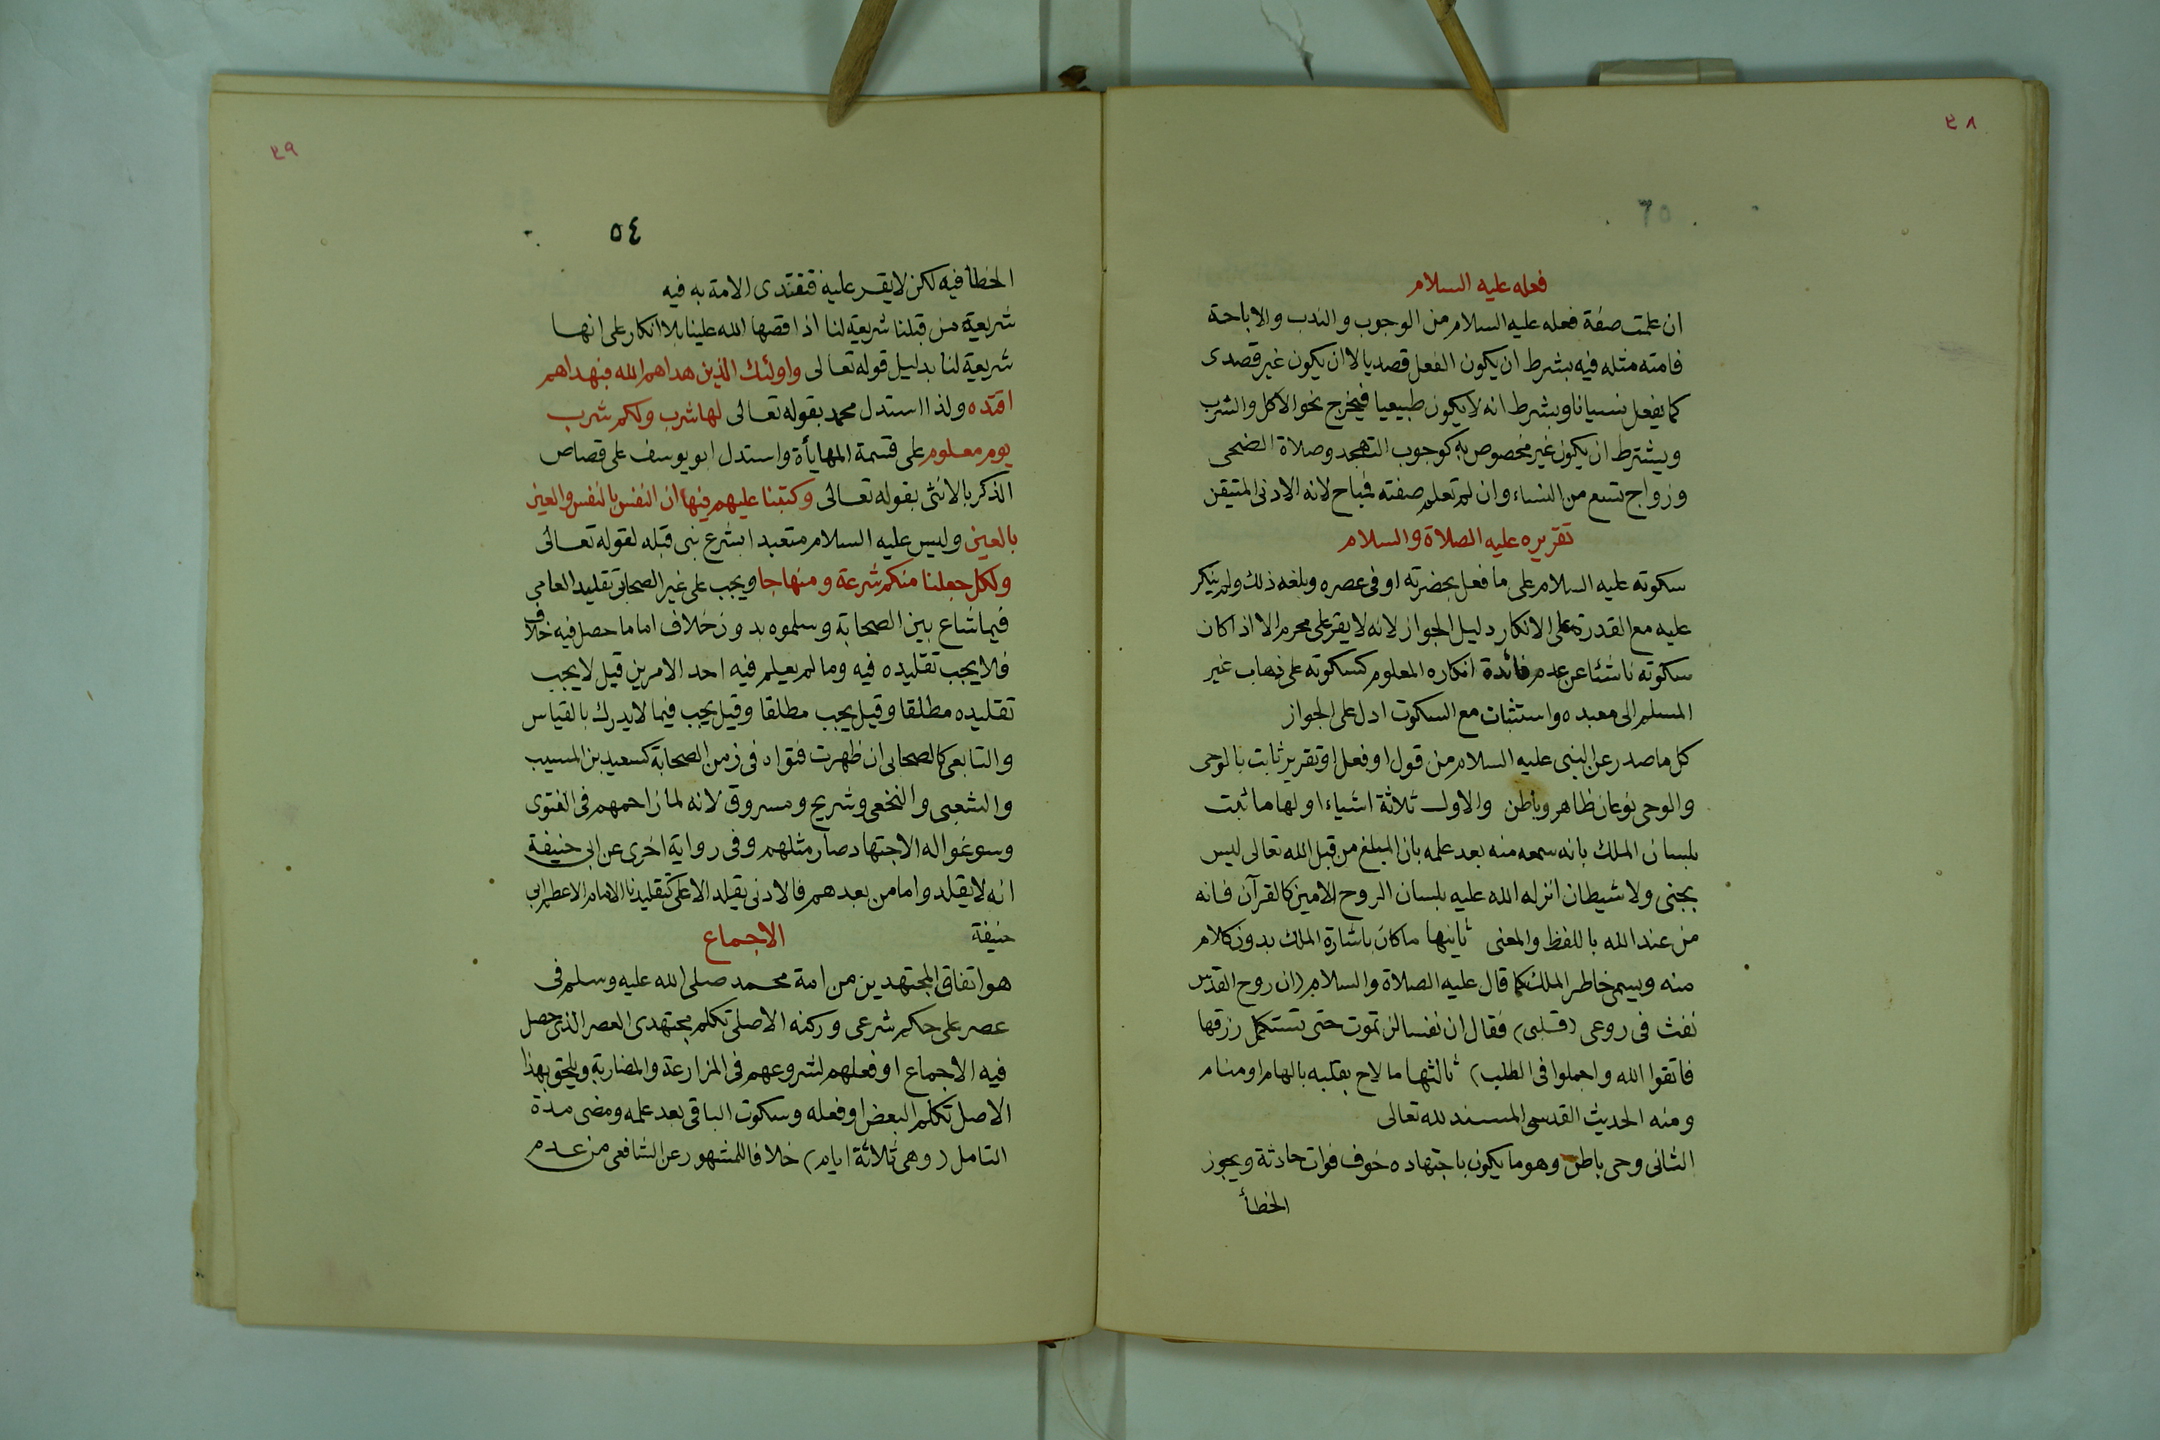 ٤٨
فعله عليه السلام
ان علمت صفة فعله عليه السلام من الوجوب والندب والاباحة
فامته مثله فيه بشرط ان يكون الفعل قصديا لا ان يكون غير قصدى
كما يفعل نسيانا وبشرط انه لا يكون طبيعيا فيخرج نحو الاكل والشرب
ويشترط ان يكون غير مخصوص به كوجوب التهجد وصلاة الضحى
وزواج تسع من النساء وان لم تعلم صفته فمباح لانه الادنى المتيقن
تقريره عليه الصلاة والسلام
سكوته عليه السلام على ما فعل بحضرته او فى عصره وبلغه ذلك ولم ينكر
عليه مع القدرة على الانكار دليل الجواز لانه لا يقر على محرم الا اذا كان
سكوته ناشئا عن عدم فائدة انكاره المعلوم كسكوته على ذهاب غير
المسلم الى معبده واستثبات مع السكوت ادل على الجواز
كل ما صدر عن النبى عليه السلام من قول او فعل او تقرير ثابت بالوحى
والوحى نوعان ظاهر وباطن والاول ثلاثة اشياء اولها ما ثبت
بلسان الملك بانه سمعه منه بعد علمه بان المبلغ من قبل الله تعالى ليس
بجنى ولا شيطان انزله الله عليه بلسان الروح الامين كالقرآن فانه
من عند الله باللفظ والمعنى ثانيها ما كان باشارة الملك بدون كلام
منه ويسمى خاطر الملك كما قال عليه الصلاة والسلام (ان روح القدس
نفث فى روعى (قلبى) فقال ان نفسا لن تموت حتى تستكمل رزقها
فاتقوا الله واجملوا فى الطلب) ثالثها ما لاح بقلبه بالهام او منام
ومنه الحديث القدسى المسند لله تعالى
الثانى وحى باطن وهو ما يكون باجتهاده خوف فوات حادثة ويجوز
الخطأ
٤٩
٥٤
الخطأ فيه لكن لا يقر عليه فتقتدى الامة به فيه
شريعة من قبلنا شريعة لنا اذا قصها الله علينا بلا انكار على انها
شريعة لنا بدليل قوله تعالى واولئك الذين هداهم الله فبهداهم
اقتده ولذا استدل محمد بقوله تعالى لها شرب ولكم شرب
يوم معلوم على قسمة المهايأة واستدل ابو يوسف على قصاص
الذكر بالانثى بقوله تعالى وكتبنا عليهم فيها ان النفس بالنفس والعين
بالعين وليس عليه السلام متعبدا بشرع نبى قبله لقوله تعالى
ولكل جعلنا منكم شرعة ومنهاجا ويجب على غير الصحابى تقليد العامى
فيما شاع بين الصحابة وسلموه بدون خلاف اما ما حصل فيه خلاف
فلا يجب تقليده فيه وما لم يعلم فيه احد الامرين قيل لا يجب
تقليده مطلقا وقيل يجب مطلقا وقيل يجب فيما لا يدرك بالقياس
والتابعى كالصحابى ان ظهرت فتواه فى زمن الصحابة كسعيد بن المسيب
والشعبى والنخعى وشريح ومسروق لانه لما زاحمهم فى الفتوى
وسوغوا له الاجتهاد صار مثلهم وفى رواية اخرى عن ابى حنيفة
انه لا يقلد واما من بعدهم فالادنى يقلد الاعلى كتقليدنا الامام الاعظم ابى
حنيفة
الاجماع
هو اتفاق المجتهدين من امة محمد صلى الله عليه وسلم فى
عصر على حكم شرعى وركنه الاصلى تكلم مجتهدى العصر الذى حصل
فيه الاجماع او فعلهم لشروعهم فى المزارعة والمضاربة ويلحق بهذا
الاصل تكلم البعض او فعله وسكوت الباقى بعد علمه ومضى مدة
التامل (وهى ثلاثة ايام) خلافا للمشهور عن الشافعى من عدم